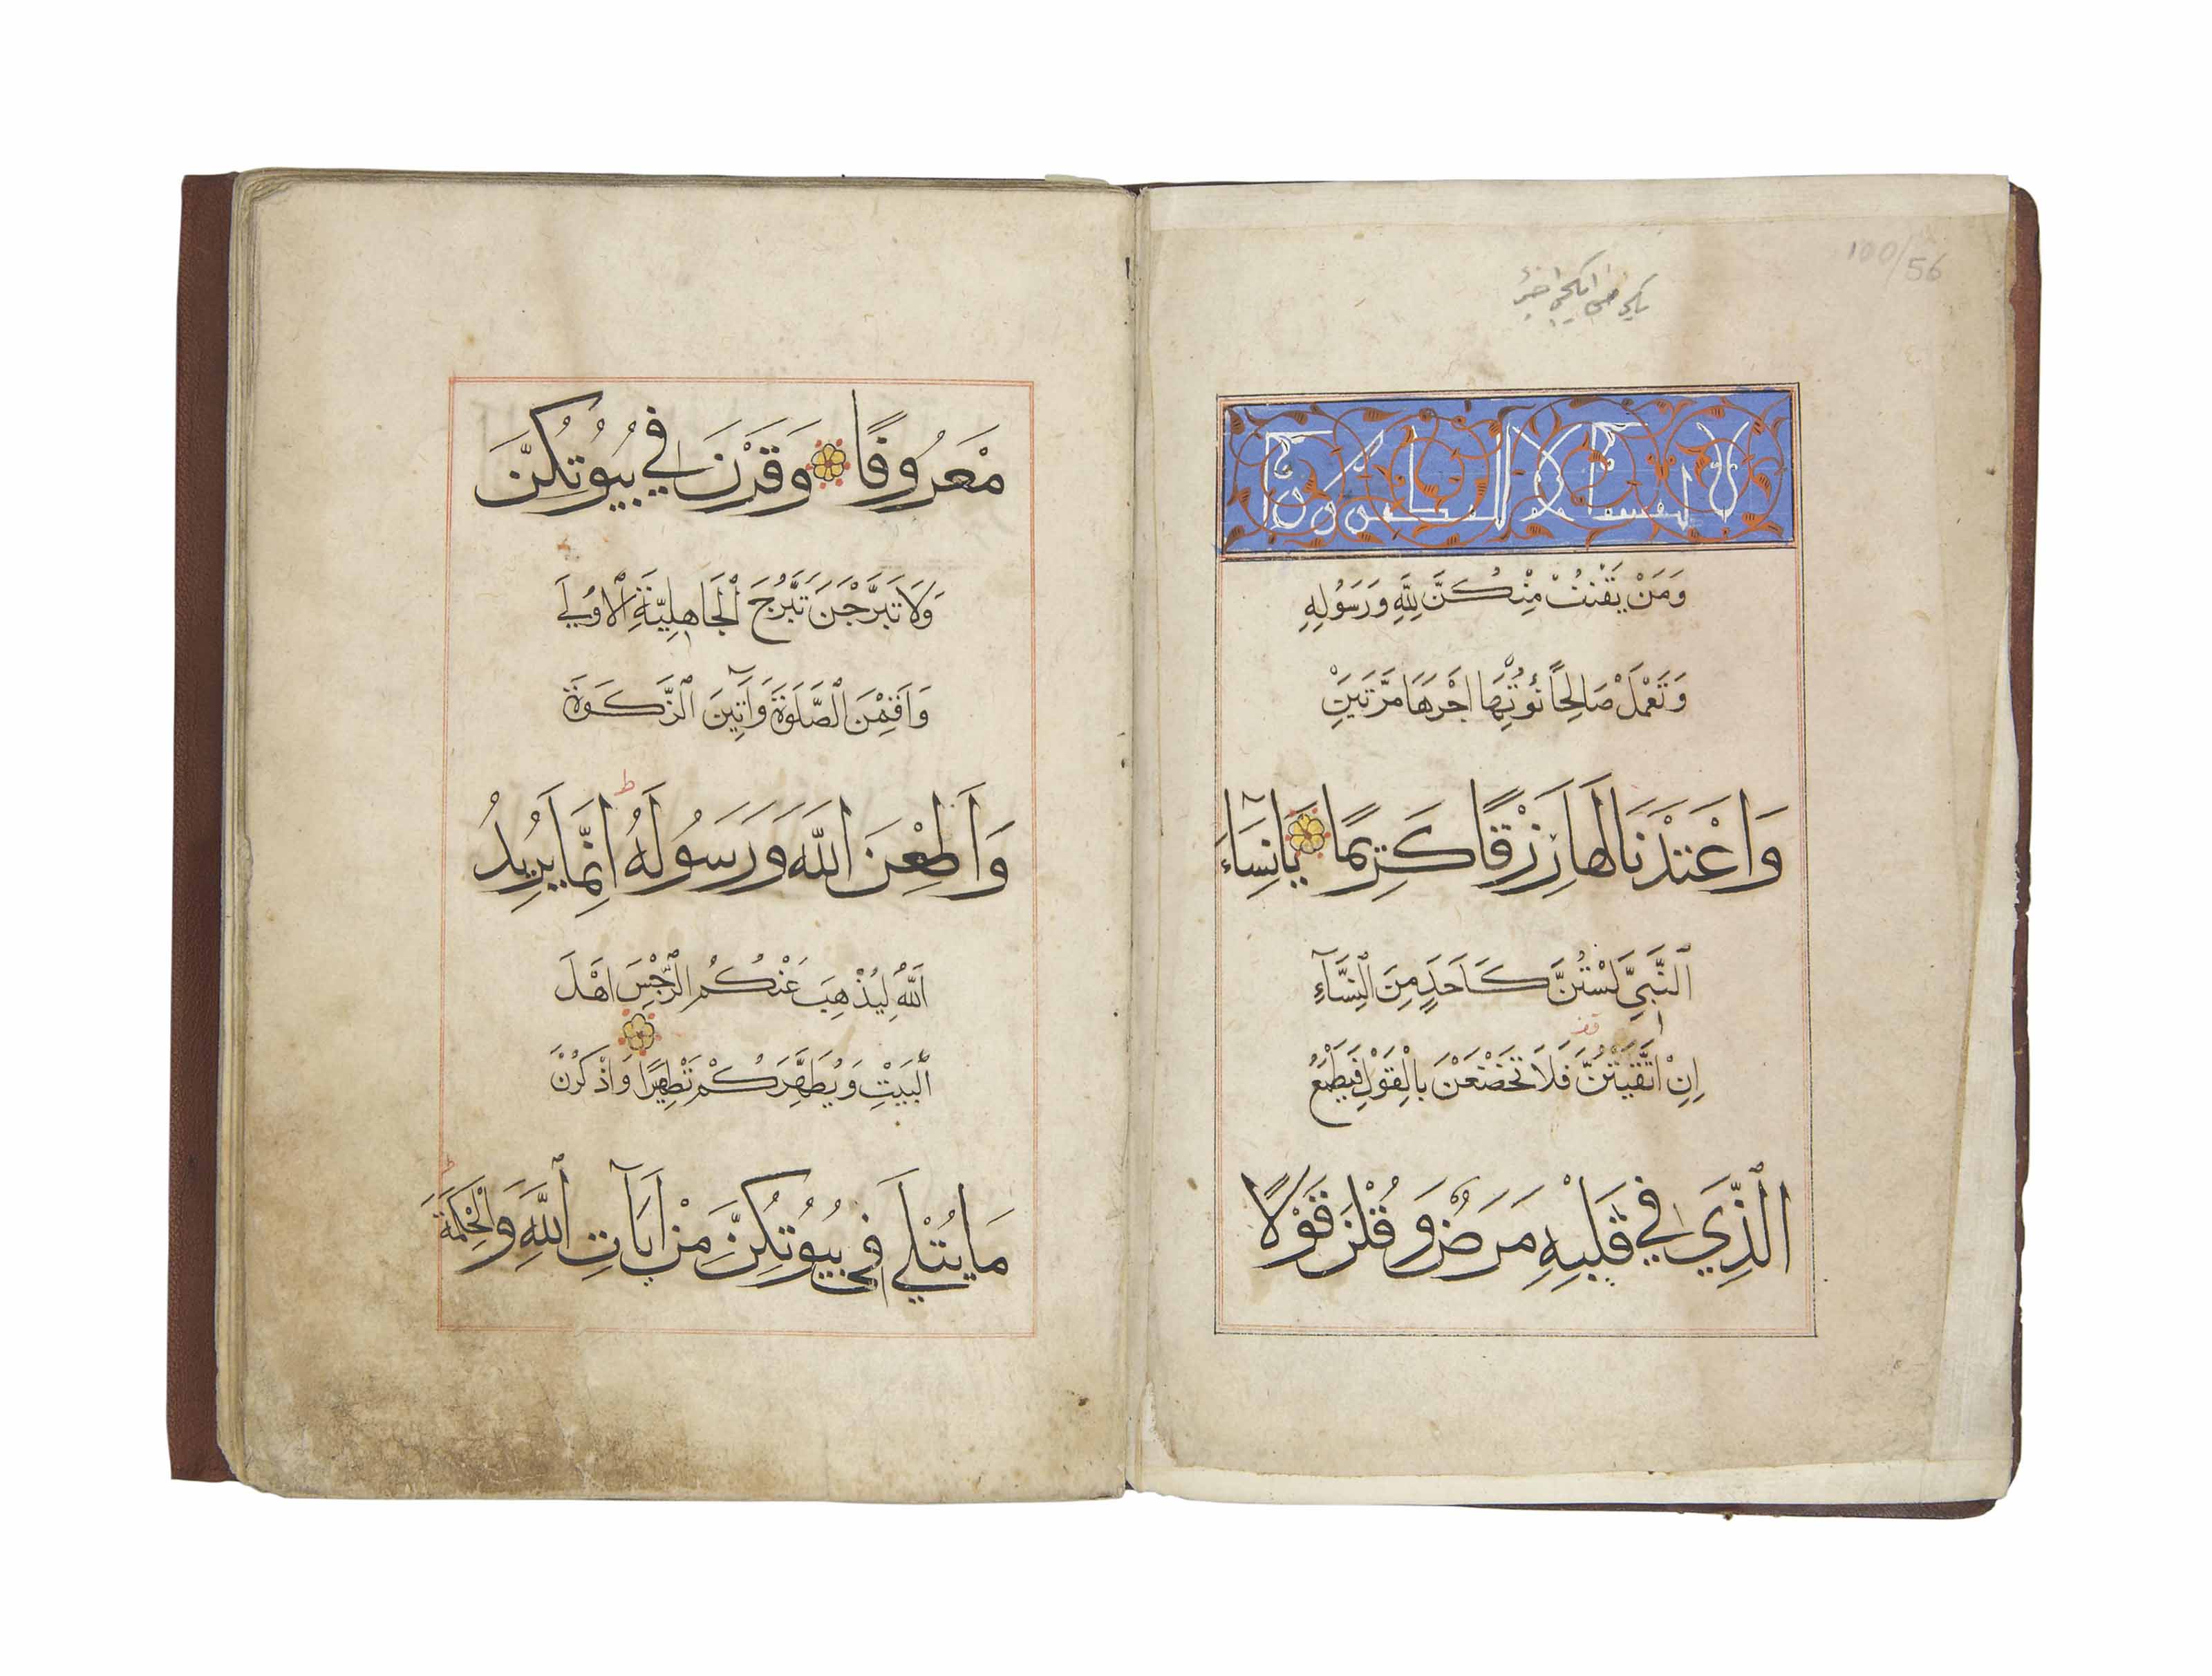 100/56
يكرمى ايكنجى جزء
لا يمسه الا المطهرون
وَمَنْ يَقْنُتْ مِنْكُنَّ لِلَّهِ وَرَسُولِهِ
وَتَعْمَلْ صَالِحًا نُؤْتِهَا اَجْرَهَا مَرَّتَيْنِ
وَاَعْتَدْنَا لَهَا رِزْقًا كَرِيمًا يَا نِسَاءَ
النَّبِيِّ لَسْتُنَّ كَاَحَدٍ مِنَ النِّسَآءِ
اِنِ اتَّقَيْتُنَّ فَلَا تَخْضَعْنَ بِالْقَوْلِ فَيَطْمَعَ
الَّذِي فِي قَلْبِهِ مَرَضٌ وَقُلْنَ قَوْلًا
مَعْرُوفًا وَقَرْنَ فِي بُيُوتِكُنَّ
وَلَا تَبَرَّجْنَ تَبَرُّجَ الْجَاهِلِيَّةِ الْاُولَى
وَاَقِمْنَ الصَّلَوةَ وَآتِينَ الزَّكَوةَ
وَاَطِعْنَ اللَّهَ وَرَسُولَهُ ط اِنَّمَا يُرِيدُ
اللَّهُ لِيُذْهِبَ عَنْكُمُ الرِّجْسَ اَهْلَ
الْبَيْتِ وَيُطَهِّرَكُمْ تَطْهِيرًا وَاذْكُرْنَ
مَا يُتْلَى فِي بُيُوتِكُنَّ مِنْ آيَاتِ اللَّهِ وَالْحِكْمَةِ ط